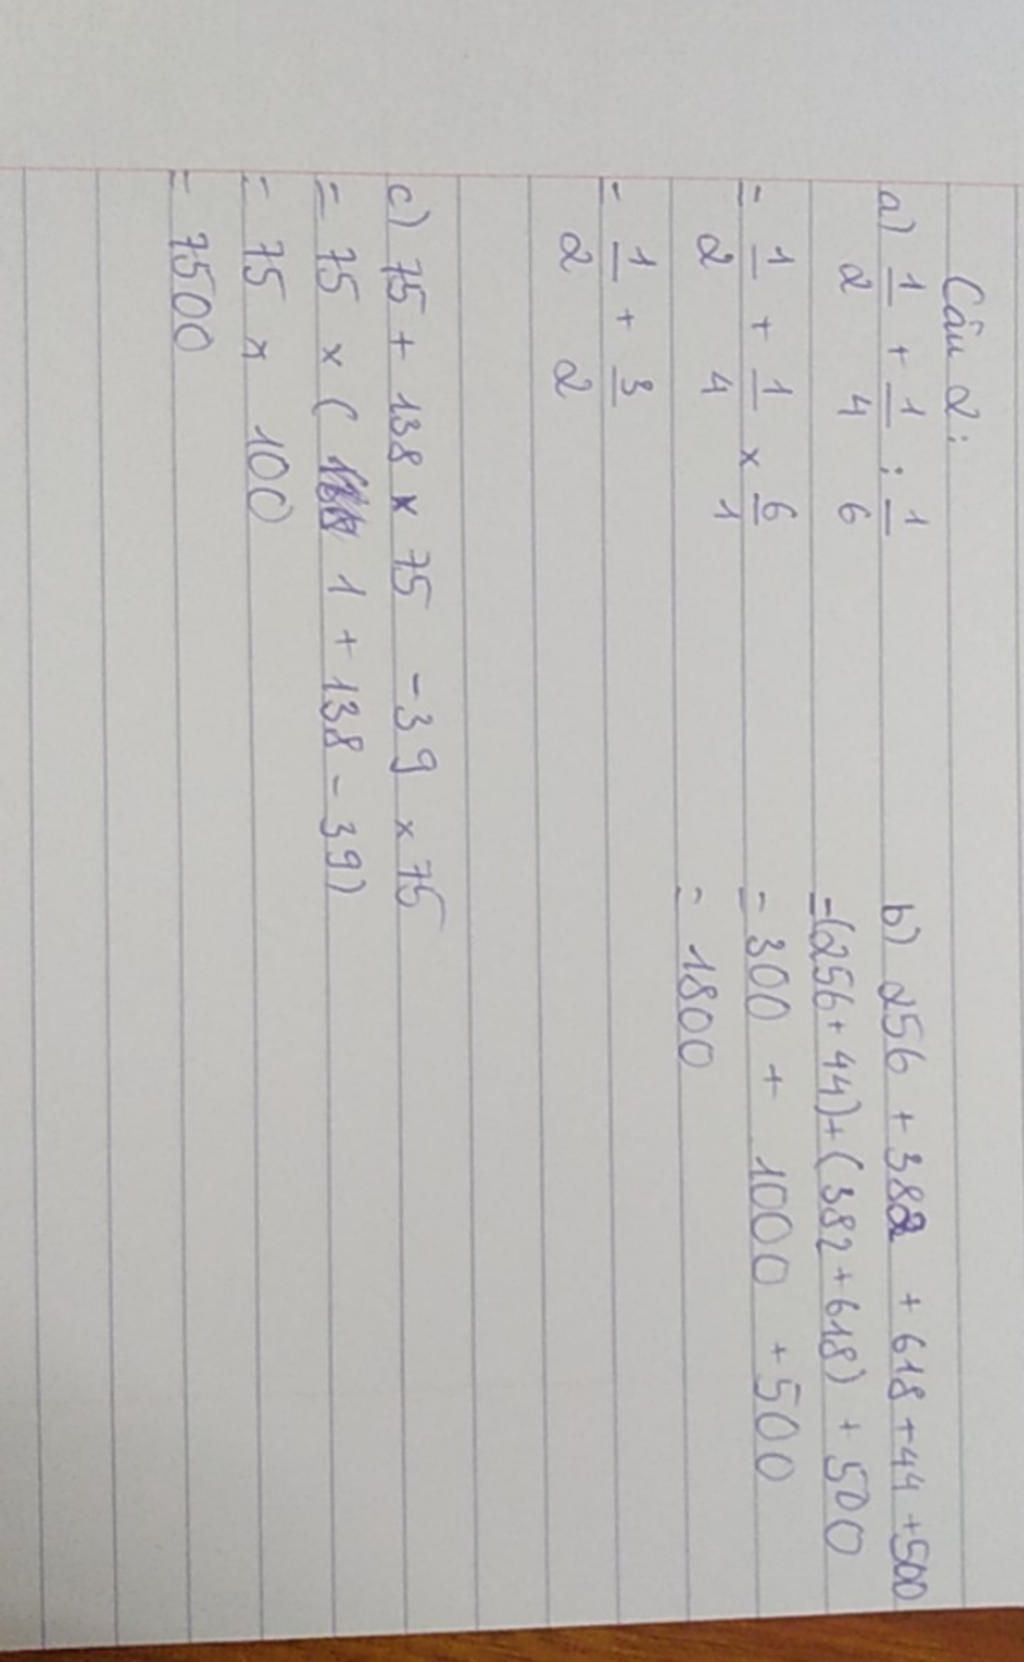 Câu 2:
a) 1/2 + 1/4 : 1/6
= 1/2 + 1/4 x 6/1
= 1/2 + 3/2
b) 256 + 382 + 618 + 44 + 500
= (256 + 44) + (382 + 618) + 500
= 300 + 1000 + 500
= 1800
c) 75 + 138 x 75 - 39 x 75
= 75 x ( 1 + 138 - 39)
= 75 x 100
= 7500